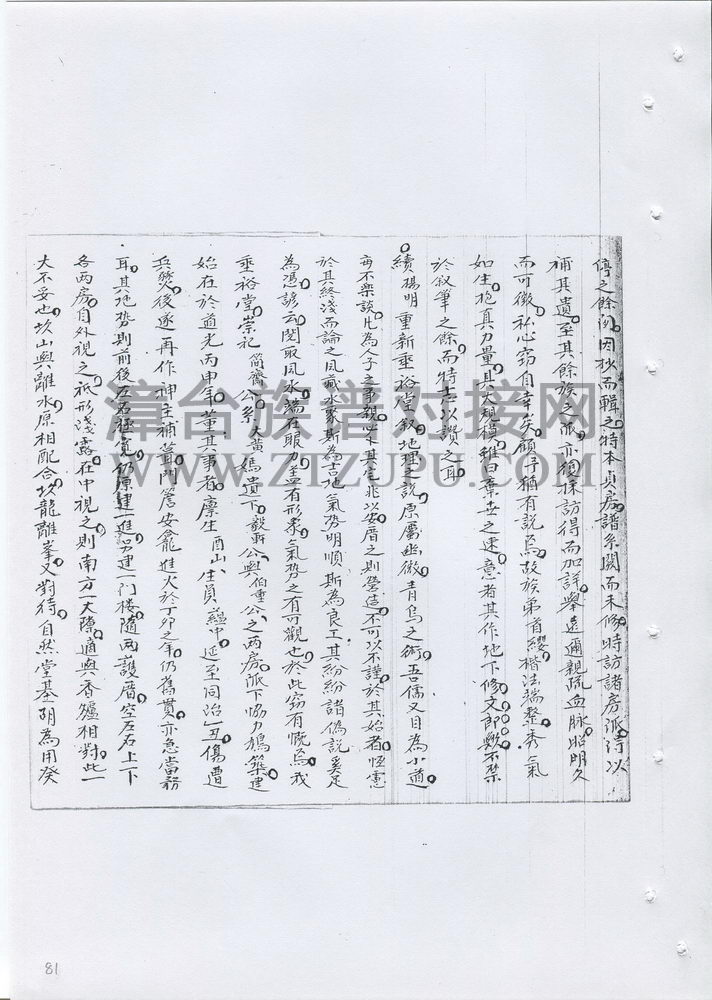 停之餘閒因抄而輯之特本貞房譜系闕而未修時訪諸房派得以
補其遺至其餘族之派亦須採訪得而加詳舉遠邇親疏血脉昭明久
而可徵私心窃自幸矣顧予猶有說焉故族弟首纓楷法端整秀氣
如生抱真力量具大規模稚日棄世之速意者其作地下修文郎歟不禁
於叙筆之餘而特志以讚之耳
續揚明重新垂裕堂叙地理之說原屬幽微青烏之術吾儒又目為小道
毎不樂談凢為人子之事親卜其宅兆以安厝之則營造不可以不謹於其始者恆憲
於其終淺而論之風藏水聚斯為吉地氣勢明順斯為良工其紛紛諸偽說奚足
為憑諺云閱取風水端在眼力盖有形象氣勢之有可觀也於此窃有慨焉我
垂裕堂崇祀簡齋公系大黃媽遺下毅軒公與伯重公之两房派下協力鳩築建
始在於道光丙申年董其事者廩生酉山生員蘊中延至同治丑傷遭
兵燹後遂再作神主補葺門簷安龕進火於丁卯之年仍舊貫亦急當務
耳其地勢則前後左右極宽仍原建一進另建一门楼隨两護厝空左右上下
各两房自外視之袛形淺露在中視之則南方一大隙適與香爐相對此一
大不妥也坎山與離水原相配合坎龍離峯又對待自然堂基朝為用癸
漳台族谱对接网
WWW.ZTZUPU.COM
81